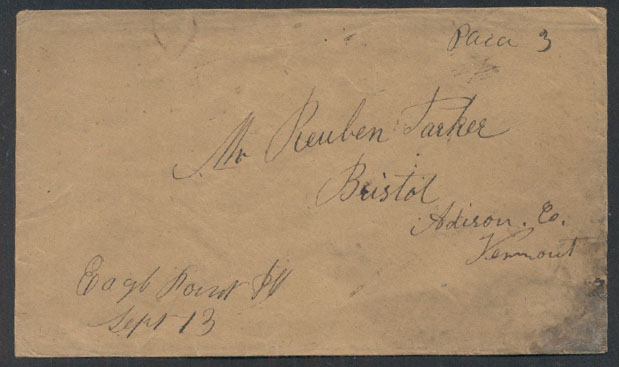 Paid 3
Mr Reuben Parker
Bristol
Adison. Co.
Vermont
Eagle Point Ill
Sept 13